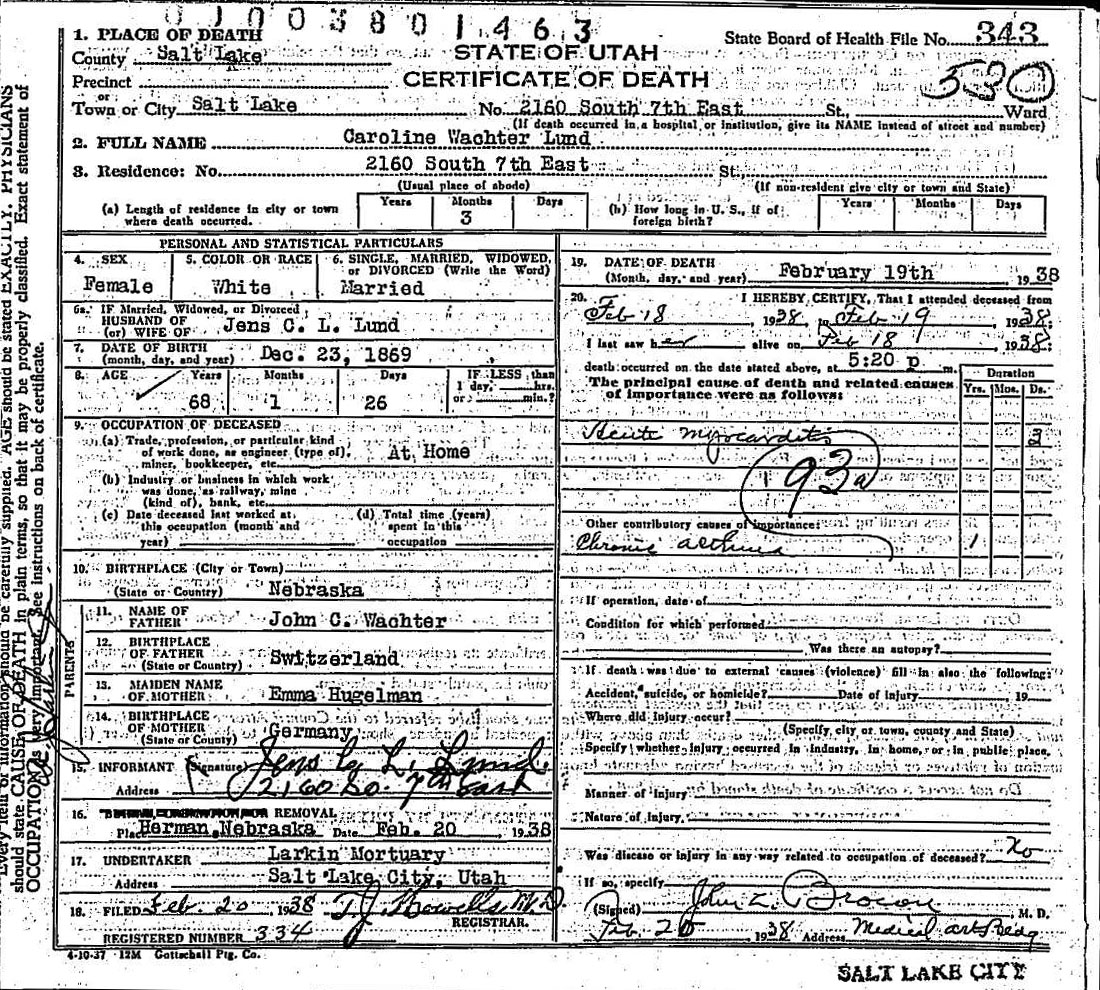 01003801463
1. PLACE OF DEATH
State Board of Health File No. 343
County Salt Lake
STATE OF UTAH
Precinct
CERTIFICATE OF DEATH
530
or
Town or City Salt Lake No. 2160 South 7th East St., Ward
(If death occurred in a hospital or institution, give its NAME instead of street and number)
2. FULL NAME Caroline Wachter Lund
3. Residence: No. 2160 South 7th East St.,
(Usual place of abode) (If non-resident give city or town and State)
(a) Length of residence in city or town where death occurred. Years Months 3 Days
(b) How long in U. S., if of foreign birth? Years Months Days
PERSONAL AND STATISTICAL PARTICULARS
4. SEX 5. COLOR OR RACE 6. SINGLE, MARRIED, WIDOWED,
or DIVORCED (Write the Word)
Female White Married
6a. IF Married, Widowed, or Divorced
HUSBAND OF
(or) WIFE OF Jens C. L. Lund
7. DATE OF BIRTH
(month, day, and year) Dec. 23, 1869
8. AGE Years Months Days IF LESS than
1 day, hrs.
or min.?
68 1 26
9. OCCUPATION OF DECEASED
(a) Trade, profession, or particular kind
of work done, as engineer (type of),
miner, bookkeeper, etc. At Home
(b) Industry or business in which work
was done, as railway, mine
(kind of), bank, etc.
(c) Date deceased last worked at
this occupation (month and
year)
(d) Total time (years)
spent in this
occupation
10. BIRTHPLACE (City or Town)
(State or Country) Nebraska
PARENTS
11. NAME OF
FATHER John C. Wachter
12. BIRTHPLACE
OF FATHER
(State or Country) Switzerland
13. MAIDEN NAME
OF MOTHER Emma Hugelman
14. BIRTHPLACE
OF MOTHER
(State or County) Germany
15. INFORMANT (Signature) Jens C. L. Lund
Address 2160 So. 7th East
16. REMOVAL
Place Herman, Nebraska Date Feb. 20 1938
17. UNDERTAKER Larkin Mortuary
Address Salt Lake City, Utah
18. FILED Feb. 20, 1938 T. J. Howells M.D.
REGISTRAR.
REGISTERED NUMBER 334
4-10-37 12M Gottschall Ptg. Co.
19. DATE OF DEATH
(Month, day, and year) February 19th 1938
20. I HEREBY CERTIFY, That I attended deceased from
Feb 18, 1938, to Feb 19, 1938.
I last saw her alive on Feb 18 1938,
death occurred on the date stated above, at 5:20 p. m.
The principal cause of death and related causes
of importance were as follows:
Duration
Yrs. Mos. Ds.
Acute myocarditis
93a
Other contributory causes of importance:
Chronic asthma 1
If operation, date of
Condition for which performed
Was there an autopsy?
If death was due to external causes (violence) fill in also the following:
Accident, suicide, or homicide? Date of injury 19
Where did injury occur?
(Specify city or town, county and State)
Specify whether injury occurred in industry, in home, or in public place,
Manner of Injury
Nature of Injury
Was disease or injury in any way related to occupation of deceased? No
If so, specify
(Signed) John Z. Brown, M. D.
Feb. 20 1938 Address Medical Arts Bldg
SALT LAKE CITY
Every item of information should be carefully supplied. AGE should be stated EXACTLY. PHYSICIANS
should state CAUSE OF DEATH in plain terms, so that it may be properly classified. Exact statement of
OCCUPATION is very important. See instructions on back of certificate.